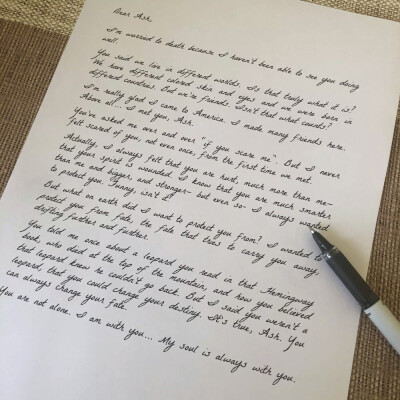 Dear Ash,
I'm worried to death because I haven't been able to see you doing
well.
You said we live in different worlds. Is that truly what it is?
We have different colored skin and eyes and we were born in
different countries. But we're friends. Isn't that what counts?
I'm really glad I came to America. I made many friends here.
Above all... I met you, Ash.
You've asked me over and over "if you scare me". But I never
felt scared of you, not even once, from the first time we met.
Actually, I always felt that you are hurt, much more than me-
that your spirit is wounded. I know that you are much smarter
than me and bigger, and stronger- but even so- I always wanted
to protect you. Funny, isn't it?
But what on earth did I want to protect you from? I wanted to
protect you from fate, the fate that tries to carry you away,
drifting further and further.
You told me once about a leopard you read in that Hemingway
book, who died at the top of the mountain, and how you believed
that leopard knew he couldn't go back. But I said you weren't a
leopard, that you could change your destiny. It's true, Ash. You
can always change your fate.
You are not alone. I am with you... My soul is always with you.